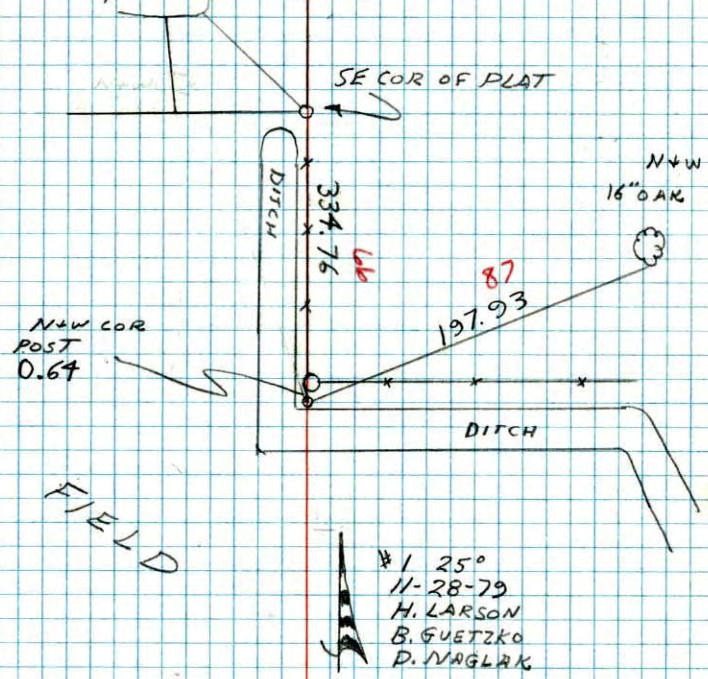 SE COR OF PLAT
N+W
16" OAK
DITCH
334.76
66
87
197.93
N+W COR
POST
0.64
DITCH
FIELD
#1 25°
11-28-79
H. LARSON
B. GUETZKO
D. NAGLAK